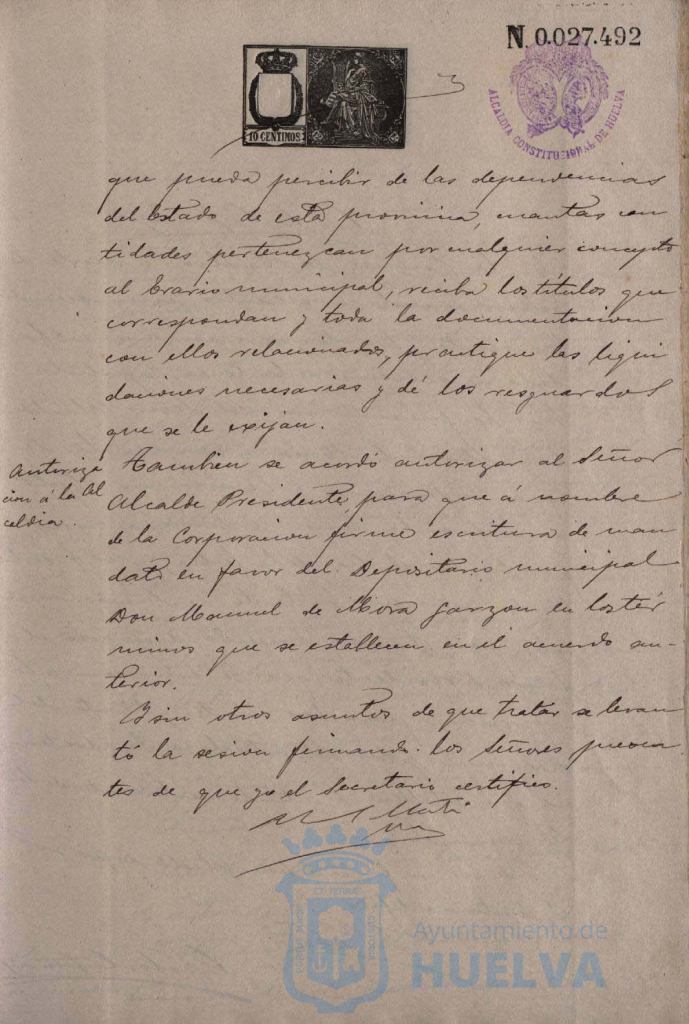 N. 0.027.492
10 CENTIMOS
ALCALDIA CONSTITUCIONAL DE HUELVA
que pueda percibir de las dependencias
del Estado de esta provincia, cuantas can
tidades pertenezcan por cualquier concepto
al Erario municipal, reciba los títulos que
correspondan y toda la documentacion
con ellos relacionados, practique las liqui
daciones necesarias y dé los resguardos
que se le exijan.
Autoriza
cion á la Al
caldia.
Tambien se acordó autorizar al Señor
Alcalde Presidente, para que á nombre
de la Corporacion firme escritura de man
dato en favor del Depositario municipal
Don Manuel de Mora Garzon en los tér
minos que se establecen en el acuerdo an-
terior.
Y sin otros asuntos de que tratar se levan
tó la sesion firmando los Señores presen
tes de que yo el Secretario certifico.
Ayuntamiento de
HUELVA